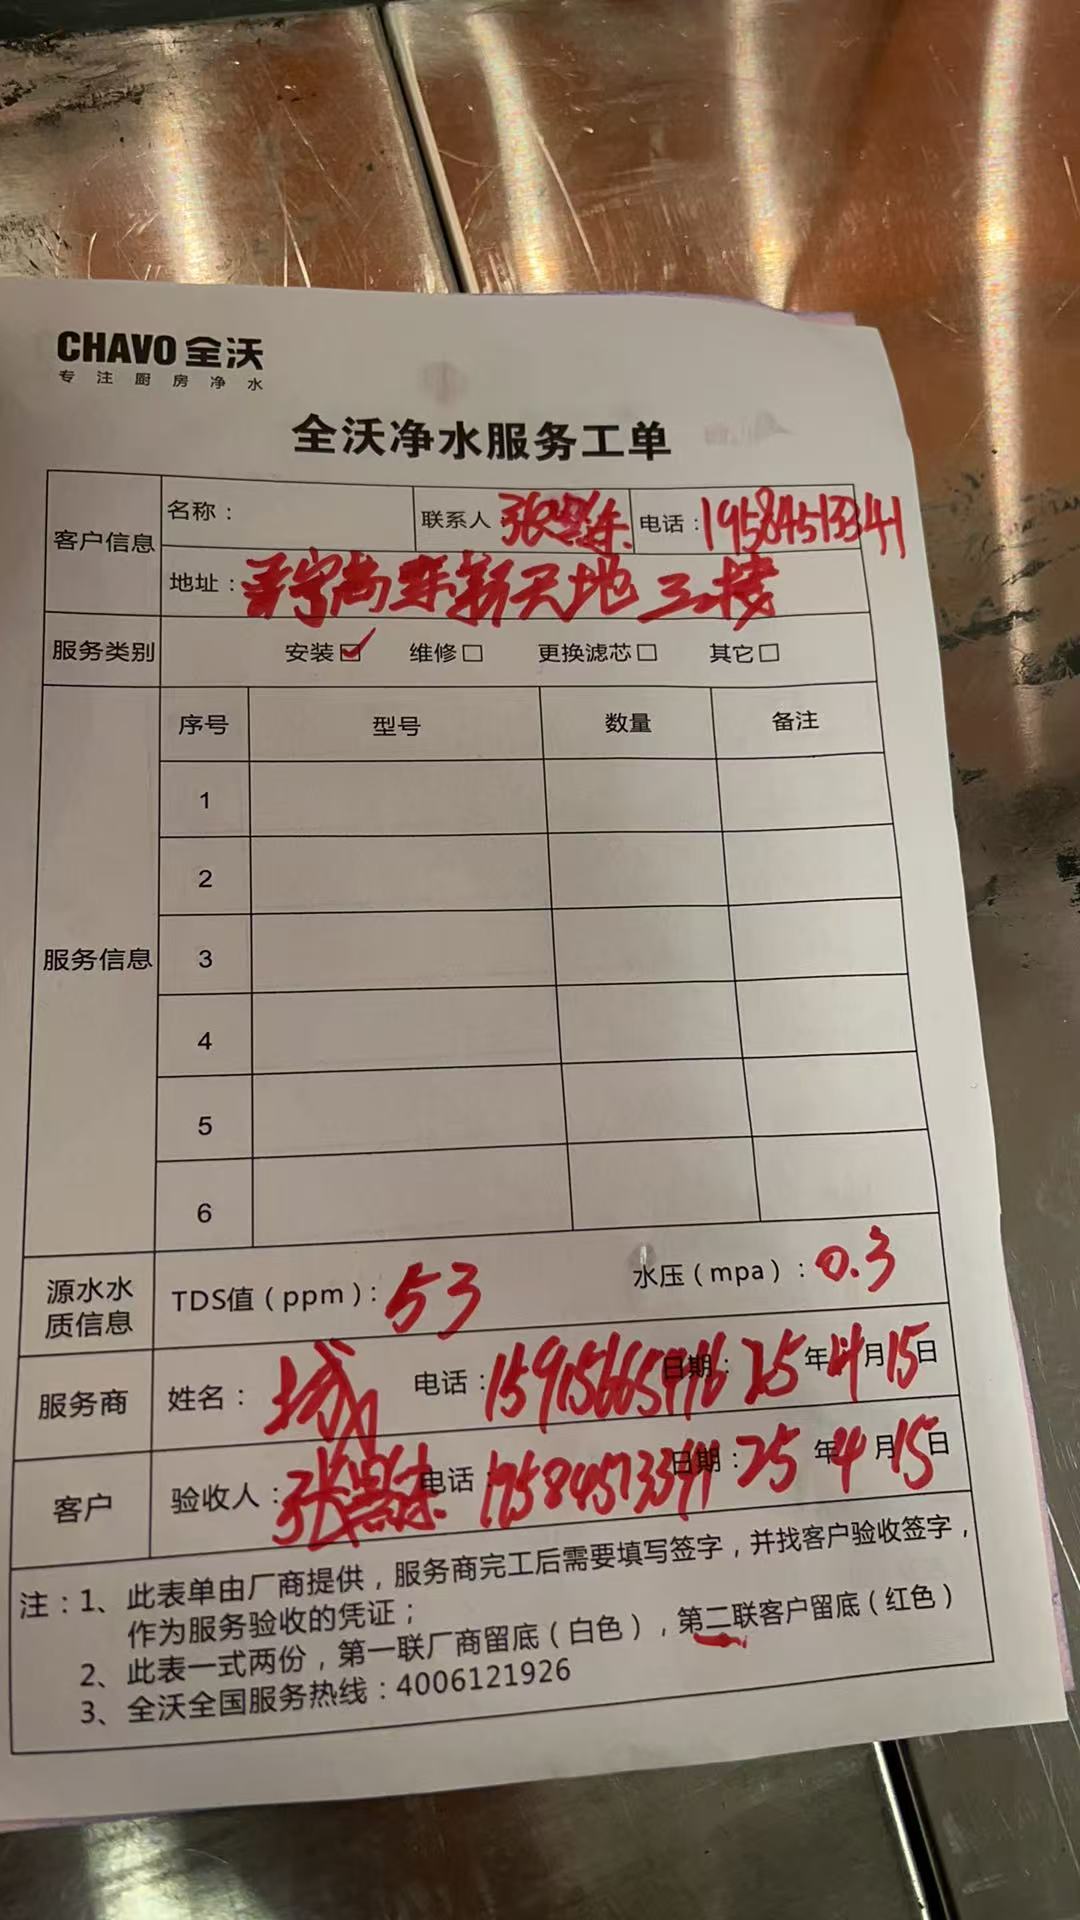 CHAVO 全沃
专注厨房净水
全沃净水服务工单
客户信息 名称： 联系人：张 东 电话：19584513341
地址： 宁尚东新天地三楼
服务类别 安装☑ 维修□ 更换滤芯□ 其它□
服务信息 序号 型号 数量 备注
1
2
3
4
5
6
源水水质信息 TDS值（ppm）：53 水压（mpa）：0.3
服务商 姓名： 电话： 日期：25年4月15日
客户 验收人：张 东 电话： 日期：25年4月15日
注：1、此表单由厂商提供，服务商完工后需要填写签字，并找客户验收签字，
作为服务验收的凭证；
2、此表一式两份，第一联厂商留底（白色），第二联客户留底（红色）
3、全沃全国服务热线：4006121926